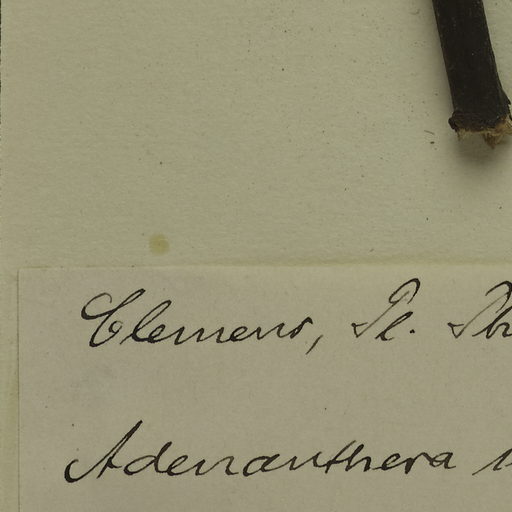 Clemens, Pl.
Adenanthera